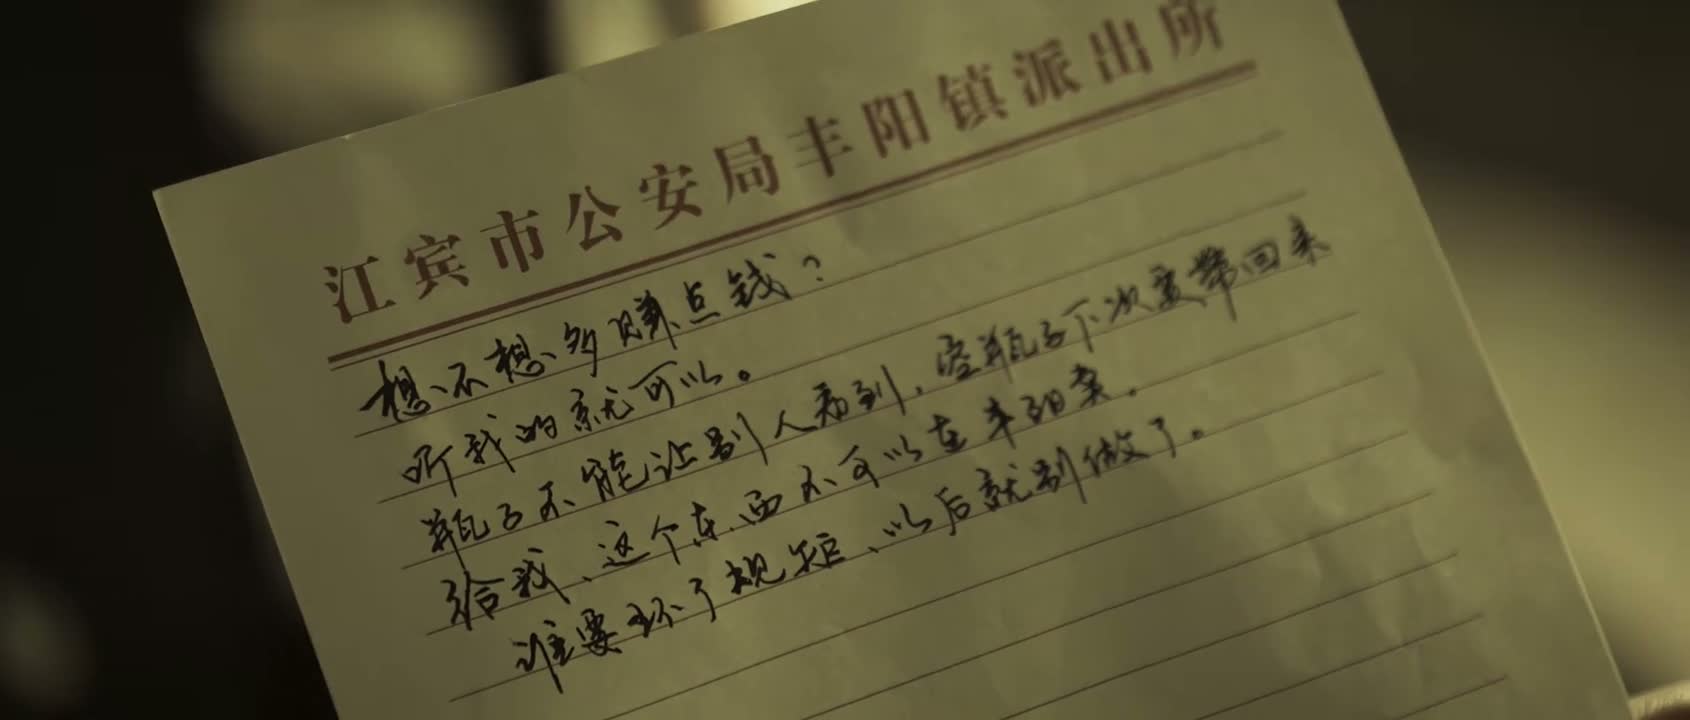 江宾市公安局丰阳镇派出所
想不想多赚点钱?
听我的就可以。
瓶子不能让别人看到,空瓶子下次要带回来
给我、这个东西不可以在丰阳卖.
谁要坏了规矩、以后就别做了。